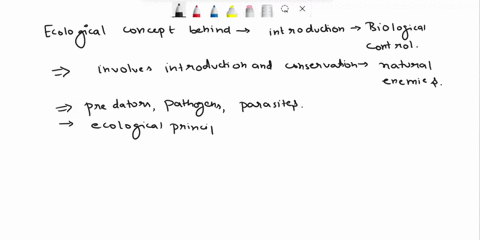 Ecological concept behind → introduction → Biological control.
⇒ involves introduction and conservation → natural enemies.
⇒ predators, pathogens, parasites.
→ ecological princil